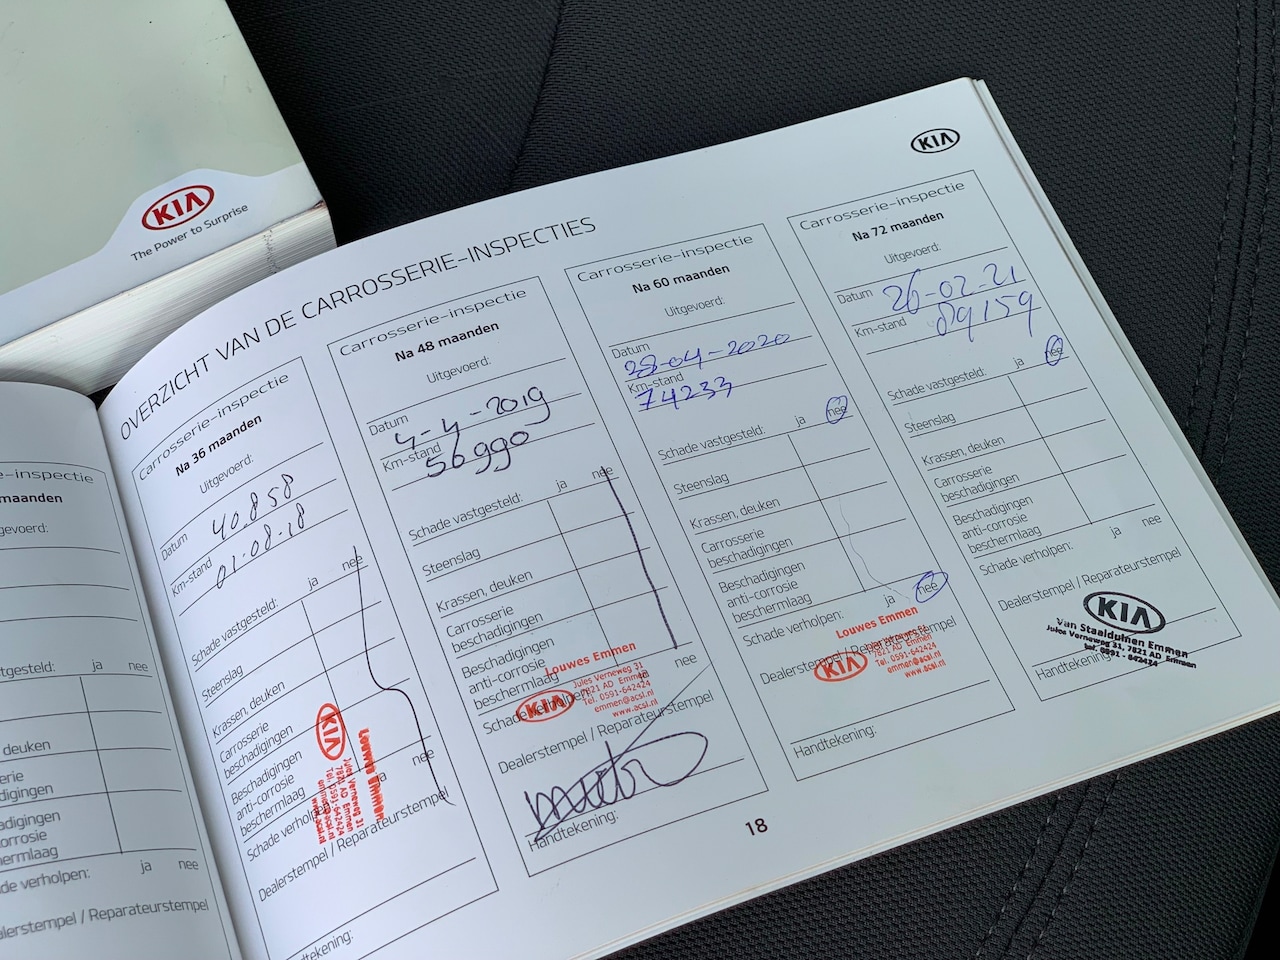 KIA
The Power to Surprise
KIA
OVERZICHT VAN DE CARROSSERIE-INSPECTIES
e-inspectie
maanden
gevoerd:
tgesteld: ja nee
deuken
serie
digingen
adigingen
orrosie
ermlaag
de verholpen: ja nee
alerstempel / Reparateurstempel
Carrosserie-inspectie
Na 36 maanden
Uitgevoerd:
Datum 40.858
Km-stand 01.08.18
Schade vastgesteld: ja nee
Steenslag
Krassen, deuken
Carrosserie
beschadigingen
Beschadigingen
anti-corrosie
beschermlaag
Schade verholpen: ja nee
Dealerstempel / Reparateurstempel
KIA
Louwes Emmen
Jules Verneweg 31
7821 AD Emmen
Tel. 0591-642424
emmen@acsl.nl
www.acsl.nl
Handtekening:
Carrosserie-inspectie
Na 48 maanden
Uitgevoerd:
Datum 4-4-2019
Km-stand 56990
Schade vastgesteld: ja nee
Steenslag
Krassen, deuken
Carrosserie
beschadigingen
Beschadigingen
anti-corrosie
beschermlaag
Schade verholpen: ja nee
Louwes Emmen
KIA
Jules Verneweg 31
7821 AD Emmen
Tel. 0591-642424
emmen@acsl.nl
www.acsl.nl
Dealerstempel / Reparateurstempel
Handtekening:
Carrosserie-inspectie
Na 60 maanden
Uitgevoerd:
Datum
28-04-2020
Km-stand
74233
Schade vastgesteld: ja nee
Steenslag
Krassen, deuken
Carrosserie
beschadigingen
Beschadigingen
anti-corrosie
beschermlaag
Schade verholpen: ja nee
Louwes Emmen
Dealerstempel / Reparateurstempel
KIA
7821 AD Emmen
Tel. 0591-642424
emmen@acsl.nl
www.acsl.nl
Handtekening:
Carrosserie-inspectie
Na 72 maanden
Uitgevoerd:
Datum 26-02-21
Km-stand 89159
Schade vastgesteld: ja nee
Steenslag
Krassen, deuken
Carrosserie
beschadigingen
Beschadigingen
anti-corrosie
beschermlaag
Schade verholpen: ja nee
Dealerstempel / Reparateurstempel
KIA
Van Staalduinen Emmen
Jules Verneweg 31, 7821 AD Emmen
tel. 0591 - 642424
Handtekening:
18